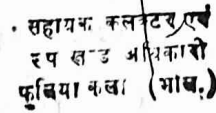 • सहायक कलक्टर एवं
उप खण्ड अधिकारी
फुलिया कला (भील.)